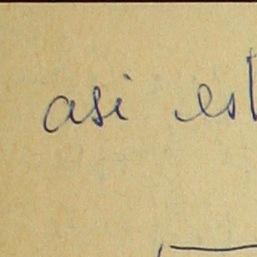 asi est